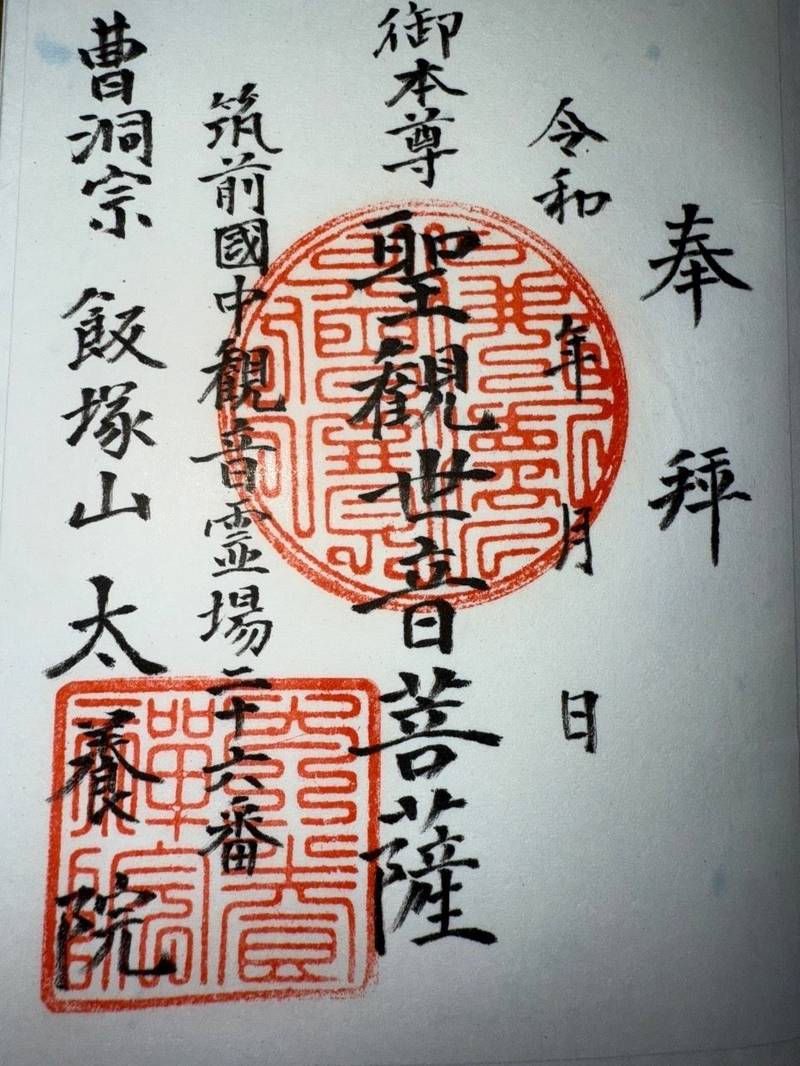 奉拝
令和 年 月 日
御本尊 聖観世音菩薩
筑前國中観音霊場二十六番
曹洞宗 飯塚山 太養院